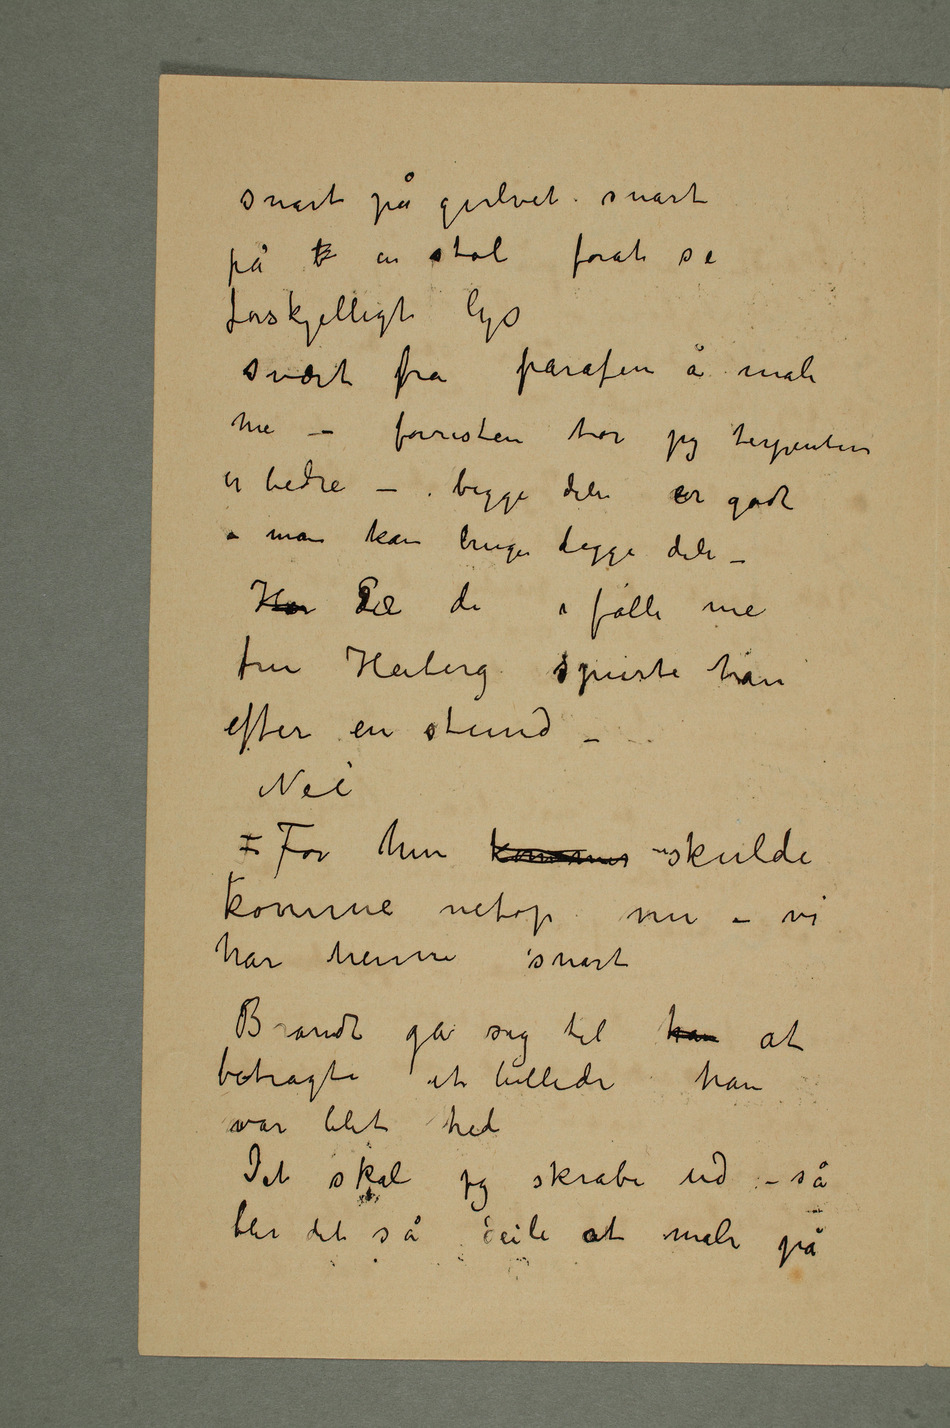 snart på gulvet snart
på en stol forat se
forskjelligt lys
svært bra parafin å male
me – forresten tror jeg terpentin
er bedre – begge dele er godt
– man kan bruge begge dele –
Har Gik de i følle me
fru Heiberg spurte han
efter en stund –
Nei
For hun kommer skulde
komme netop nu – vi
har henne snart
Brandt ga sig til han at
betragte et billede han
var blet ked
Det skal jeg skrabe ud – så
blir det så deile at male på